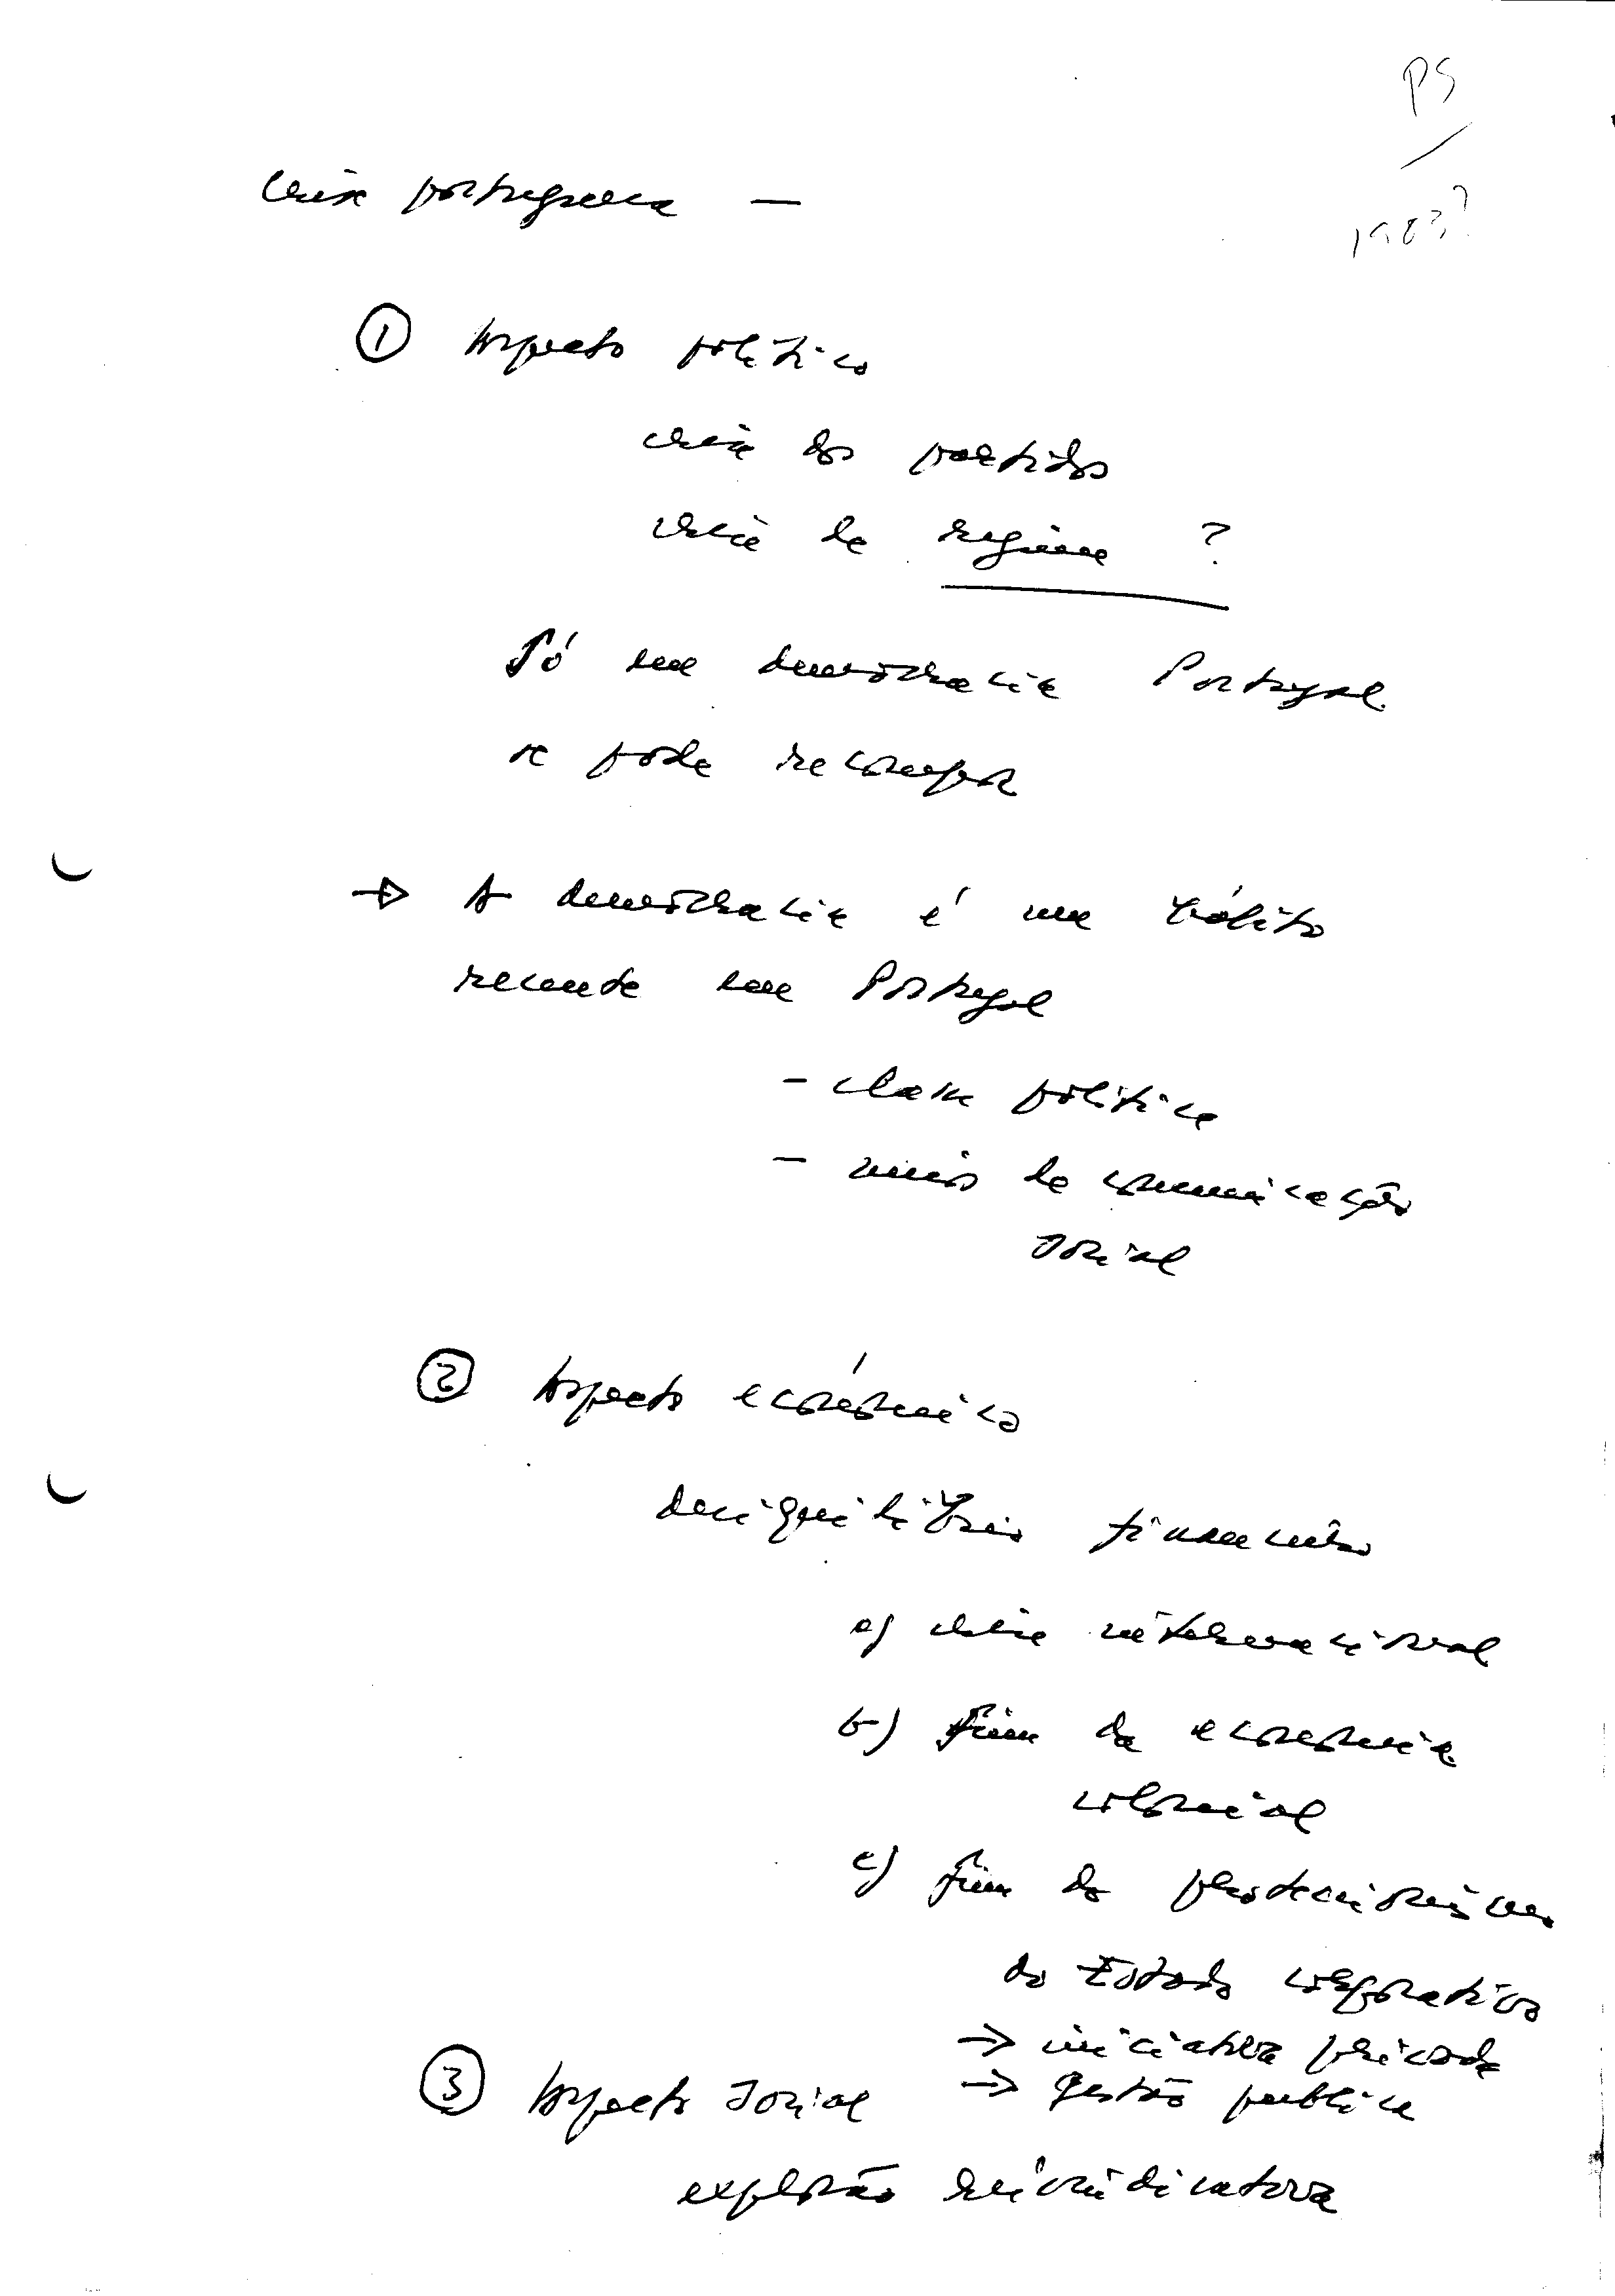 PS
1983?
Crise portuguesa —
① Aspecto político
crise dos partidos
crise de regime ?
Só em democracia Portugal
se pode recompor
→ A democracia é um hábito
recente em Portugal
- classe política
- meios de comunicação
social
② Aspecto económico
desiquilíbrio financeiro
a) crise internacional
b) fim da economia
colonial
c) fim do proteccionismo
do Estado corporativo
→ iniciativa privada
→ gestão pública
③ Aspecto social
explosão reivindicativa